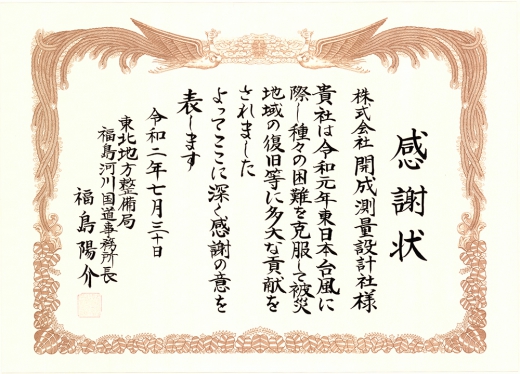 感謝状
株式会社 開成測量設計社様
貴社は令和元年東日本台風に
際し種々の困難を克服して被災
地域の復旧等に多大な貢献を
されました
よってここに深く感謝の意を
表します
令和二年七月三十日
東北地方整備局
福島河川国道事務所長
福島陽介